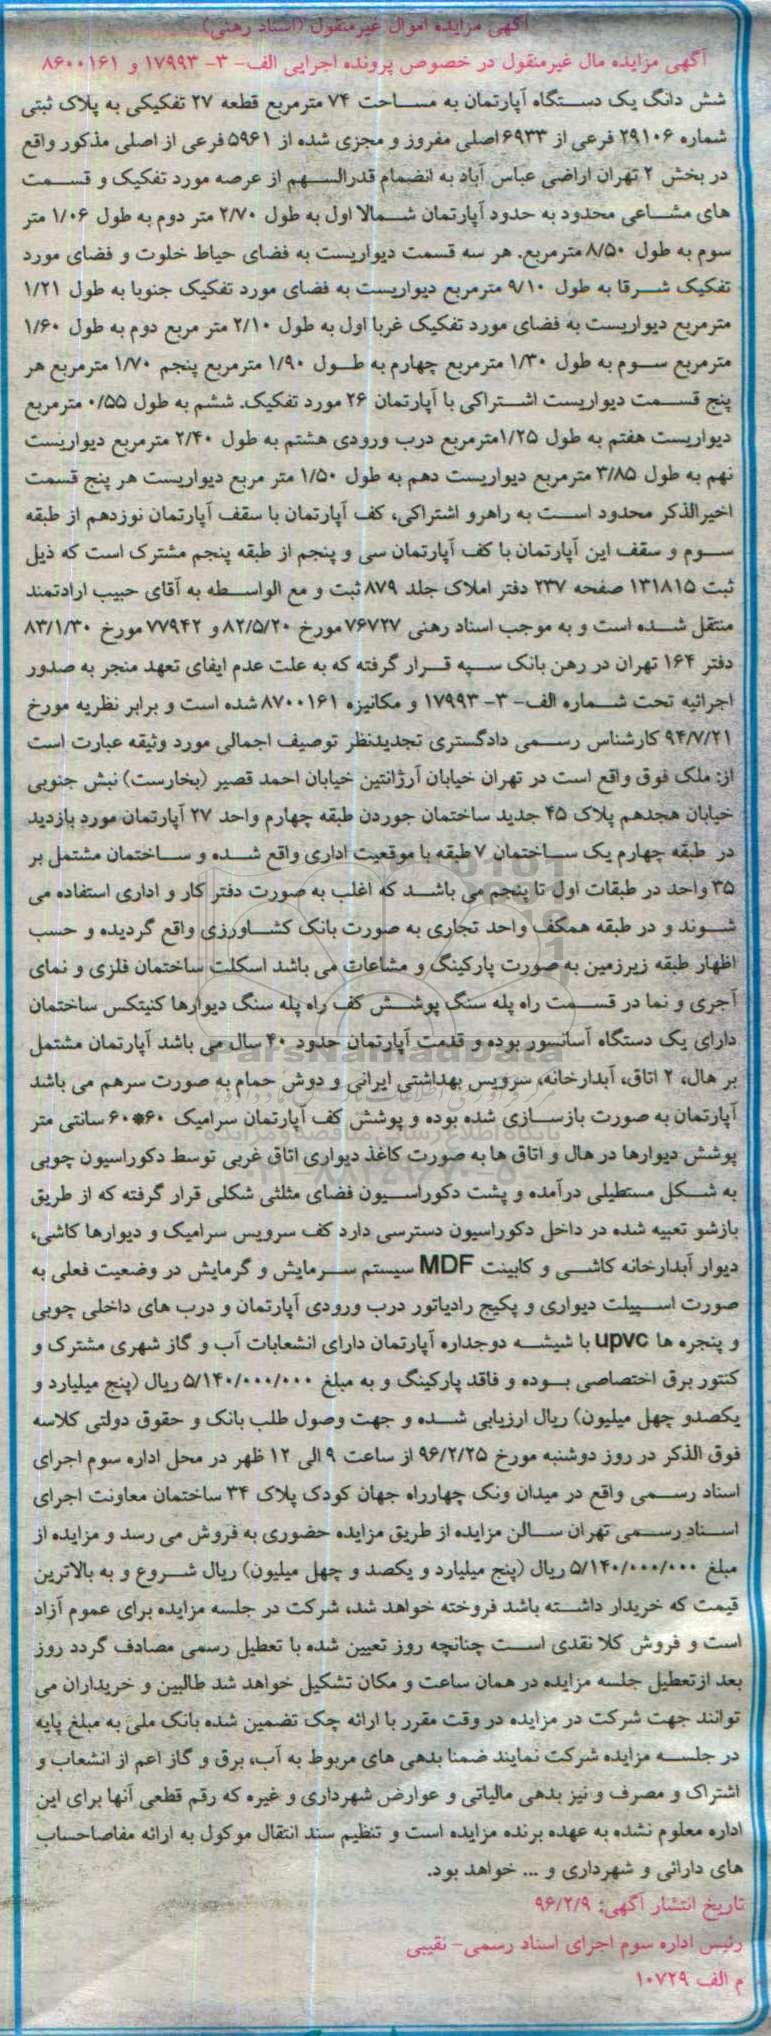 آگهی مزایده اموال غیرمنقول (اسناد رهنی)
آگهی مزایده مال غیرمنقول در خصوص پرونده اجرایی الف- ۳- ۱۷۹۹۳ و ۸۶۰۰۱۶۱
شش دانگ یک دستگاه آپارتمان به مساحت ۷۴ مترمربع قطعه ۲۷ تفکیکی به پلاک ثبتی
شماره ۲۹۱۰۶ فرعی از ۶۹۳۳ اصلی مفروز و مجزی شده از ۵۹۶۱ فرعی از اصلی مذکور واقع
در بخش ۲ تهران اراضی عباس آباد به انضمام قدرالسهم از عرصه مورد تفکیک و قسمت
های مشاعی محدود به حدود آپارتمان شمالا اول به طول ۲/۷۰ متر دوم به طول ۱/۰۶ متر
سوم به طول ۸/۵۰ مترمربع. هر سه قسمت دیواریست به فضای حیاط خلوت و فضای مورد
تفکیک شرقا به طول ۹/۱۰ مترمربع دیواریست به فضای مورد تفکیک جنوبا به طول ۱/۲۱
مترمربع دیواریست به فضای مورد تفکیک غربا اول به طول ۲/۱۰ متر مربع دوم به طول ۱/۶۰
مترمربع سوم به طول ۱/۳۰ مترمربع چهارم به طول ۱/۹۰ مترمربع پنجم ۱/۷۰ مترمربع هر
پنج قسمت دیواریست اشتراکی با آپارتمان ۲۶ مورد تفکیک. ششم به طول ۰/۵۵ مترمربع
دیواریست هفتم به طول ۱/۲۵مترمربع درب ورودی هشتم به طول ۲/۴۰ مترمربع دیواریست
نهم به طول ۳/۸۵ مترمربع دیواریست دهم به طول ۱/۵۰ متر مربع دیواریست هر پنج قسمت
اخیرالذکر محدود است به راهرو اشتراکی، کف آپارتمان با سقف آپارتمان نوزدهم از طبقه
سوم و سقف این آپارتمان با کف آپارتمان سی و پنجم از طبقه پنجم مشترک است که ذیل
ثبت ۱۳۱۸۱۵ صفحه ۲۳۷ دفتر املاک جلد ۸۷۹ ثبت و مع الواسطه به آقای حبیب ارادتمند
منتقل شده است و به موجب اسناد رهنی ۷۶۷۲۷ مورخ ۸۲/۵/۲۰ و ۷۷۹۴۲ مورخ ۸۳/۱/۳۰
دفتر ۱۶۴ تهران در رهن بانک سپه قرار گرفته که به علت عدم ایفای تعهد منجر به صدور
اجرائیه تحت شماره الف- ۳- ۱۷۹۹۳ و مکانیزه ۸۷۰۰۱۶۱ شده است و برابر نظریه مورخ
۹۴/۷/۲۱ کارشناس رسمی دادگستری تجدیدنظر توصیف اجمالی مورد وثیقه عبارت است
از: ملک فوق واقع است در تهران خیابان آرژانتین خیابان احمد قصیر (بخارست) نبش جنوبی
خیابان هجدهم پلاک ۴۵ جدید ساختمان جوردن طبقه چهارم واحد ۲۷ آپارتمان مورد بازدید
در طبقه چهارم یک ساختمان ۷ طبقه با موقعیت اداری واقع شده و ساختمان مشتمل بر
۳۵ واحد در طبقات اول تا پنجم می باشد که اغلب به صورت دفتر کار و اداری استفاده می
شوند و در طبقه همکف واحد تجاری به صورت بانک کشاورزی واقع گردیده و حسب
اظهار طبقه زیرزمین به صورت پارکینگ و مشاعات می باشد اسکلت ساختمان فلزی و نمای
آجری و نما در قسمت راه پله سنگ پوشش کف راه پله سنگ دیوارها کنیتکس ساختمان
دارای یک دستگاه آسانسور بوده و قدمت آپارتمان حدود ۴۰ سال می باشد آپارتمان مشتمل
بر هال، ۲ اتاق، آبدارخانه، سرویس بهداشتی ایرانی و دوش حمام به صورت سرهم می باشد
آپارتمان به صورت بازسازی شده بوده و پوشش کف آپارتمان سرامیک ۶۰*۶۰ سانتی متر
پوشش دیوارها در هال و اتاق ها به صورت کاغذ دیواری اتاق غربی توسط دکوراسیون چوبی
به شکل مستطیلی درآمده و پشت دکوراسیون فضای مثلثی شکلی قرار گرفته که از طریق
بازشو تعبیه شده در داخل دکوراسیون دسترسی دارد کف سرویس سرامیک و دیوارها کاشی،
دیوار آبدارخانه کاشی و کابینت MDF سیستم سرمایش و گرمایش در وضعیت فعلی به
صورت اسپیلت دیواری و پکیج رادیاتور درب ورودی آپارتمان و درب های داخلی چوبی
و پنجره ها upvc با شیشه دوجداره آپارتمان دارای انشعابات آب و گاز شهری مشترک و
کنتور برق اختصاصی بوده و فاقد پارکینگ و به مبلغ ۵/۱۴۰/۰۰۰/۰۰۰ ریال (پنج میلیارد و
یکصدو چهل میلیون) ریال ارزیابی شده و جهت وصول طلب بانک و حقوق دولتی کلاسه
فوق الذکر در روز دوشنبه مورخ ۹۶/۲/۲۵ از ساعت ۹ الی ۱۲ ظهر در محل اداره سوم اجرای
اسناد رسمی واقع در میدان ونک چهارراه جهان کودک پلاک ۳۴ ساختمان معاونت اجرای
اسناد رسمی تهران سالن مزایده از طریق مزایده حضوری به فروش می رسد و مزایده از
مبلغ ۵/۱۴۰/۰۰۰/۰۰۰ ریال (پنج میلیارد و یکصد و چهل میلیون) ریال شروع و به بالاترین
قیمت که خریدار داشته باشد فروخته خواهد شد، شرکت در جلسه مزایده برای عموم آزاد
است و فروش کلا نقدی است چنانچه روز تعیین شده با تعطیل رسمی مصادف گردد روز
بعد ازتعطیل جلسه مزایده در همان ساعت و مکان تشکیل خواهد شد طالبین و خریداران می
توانند جهت شرکت در مزایده در وقت مقرر با ارائه چک تضمین شده بانک ملی به مبلغ پایه
در جلسه مزایده شرکت نمایند ضمنا بدهی های مربوط به آب، برق و گاز اعم از انشعاب و
اشتراک و مصرف و نیز بدهی مالیاتی و عوارض شهرداری و غیره که رقم قطعی آنها برای این
اداره معلوم نشده به عهده برنده مزایده است و تنظیم سند انتقال موکول به ارائه مفاصاحساب
های دارائی و شهرداری و ... خواهد بود.
تاریخ انتشار آگهی: ۹۶/۲/۹
رئیس اداره سوم اجرای اسناد رسمی- نقیبی
م الف ۱۰۷۲۹
ParsNamadData